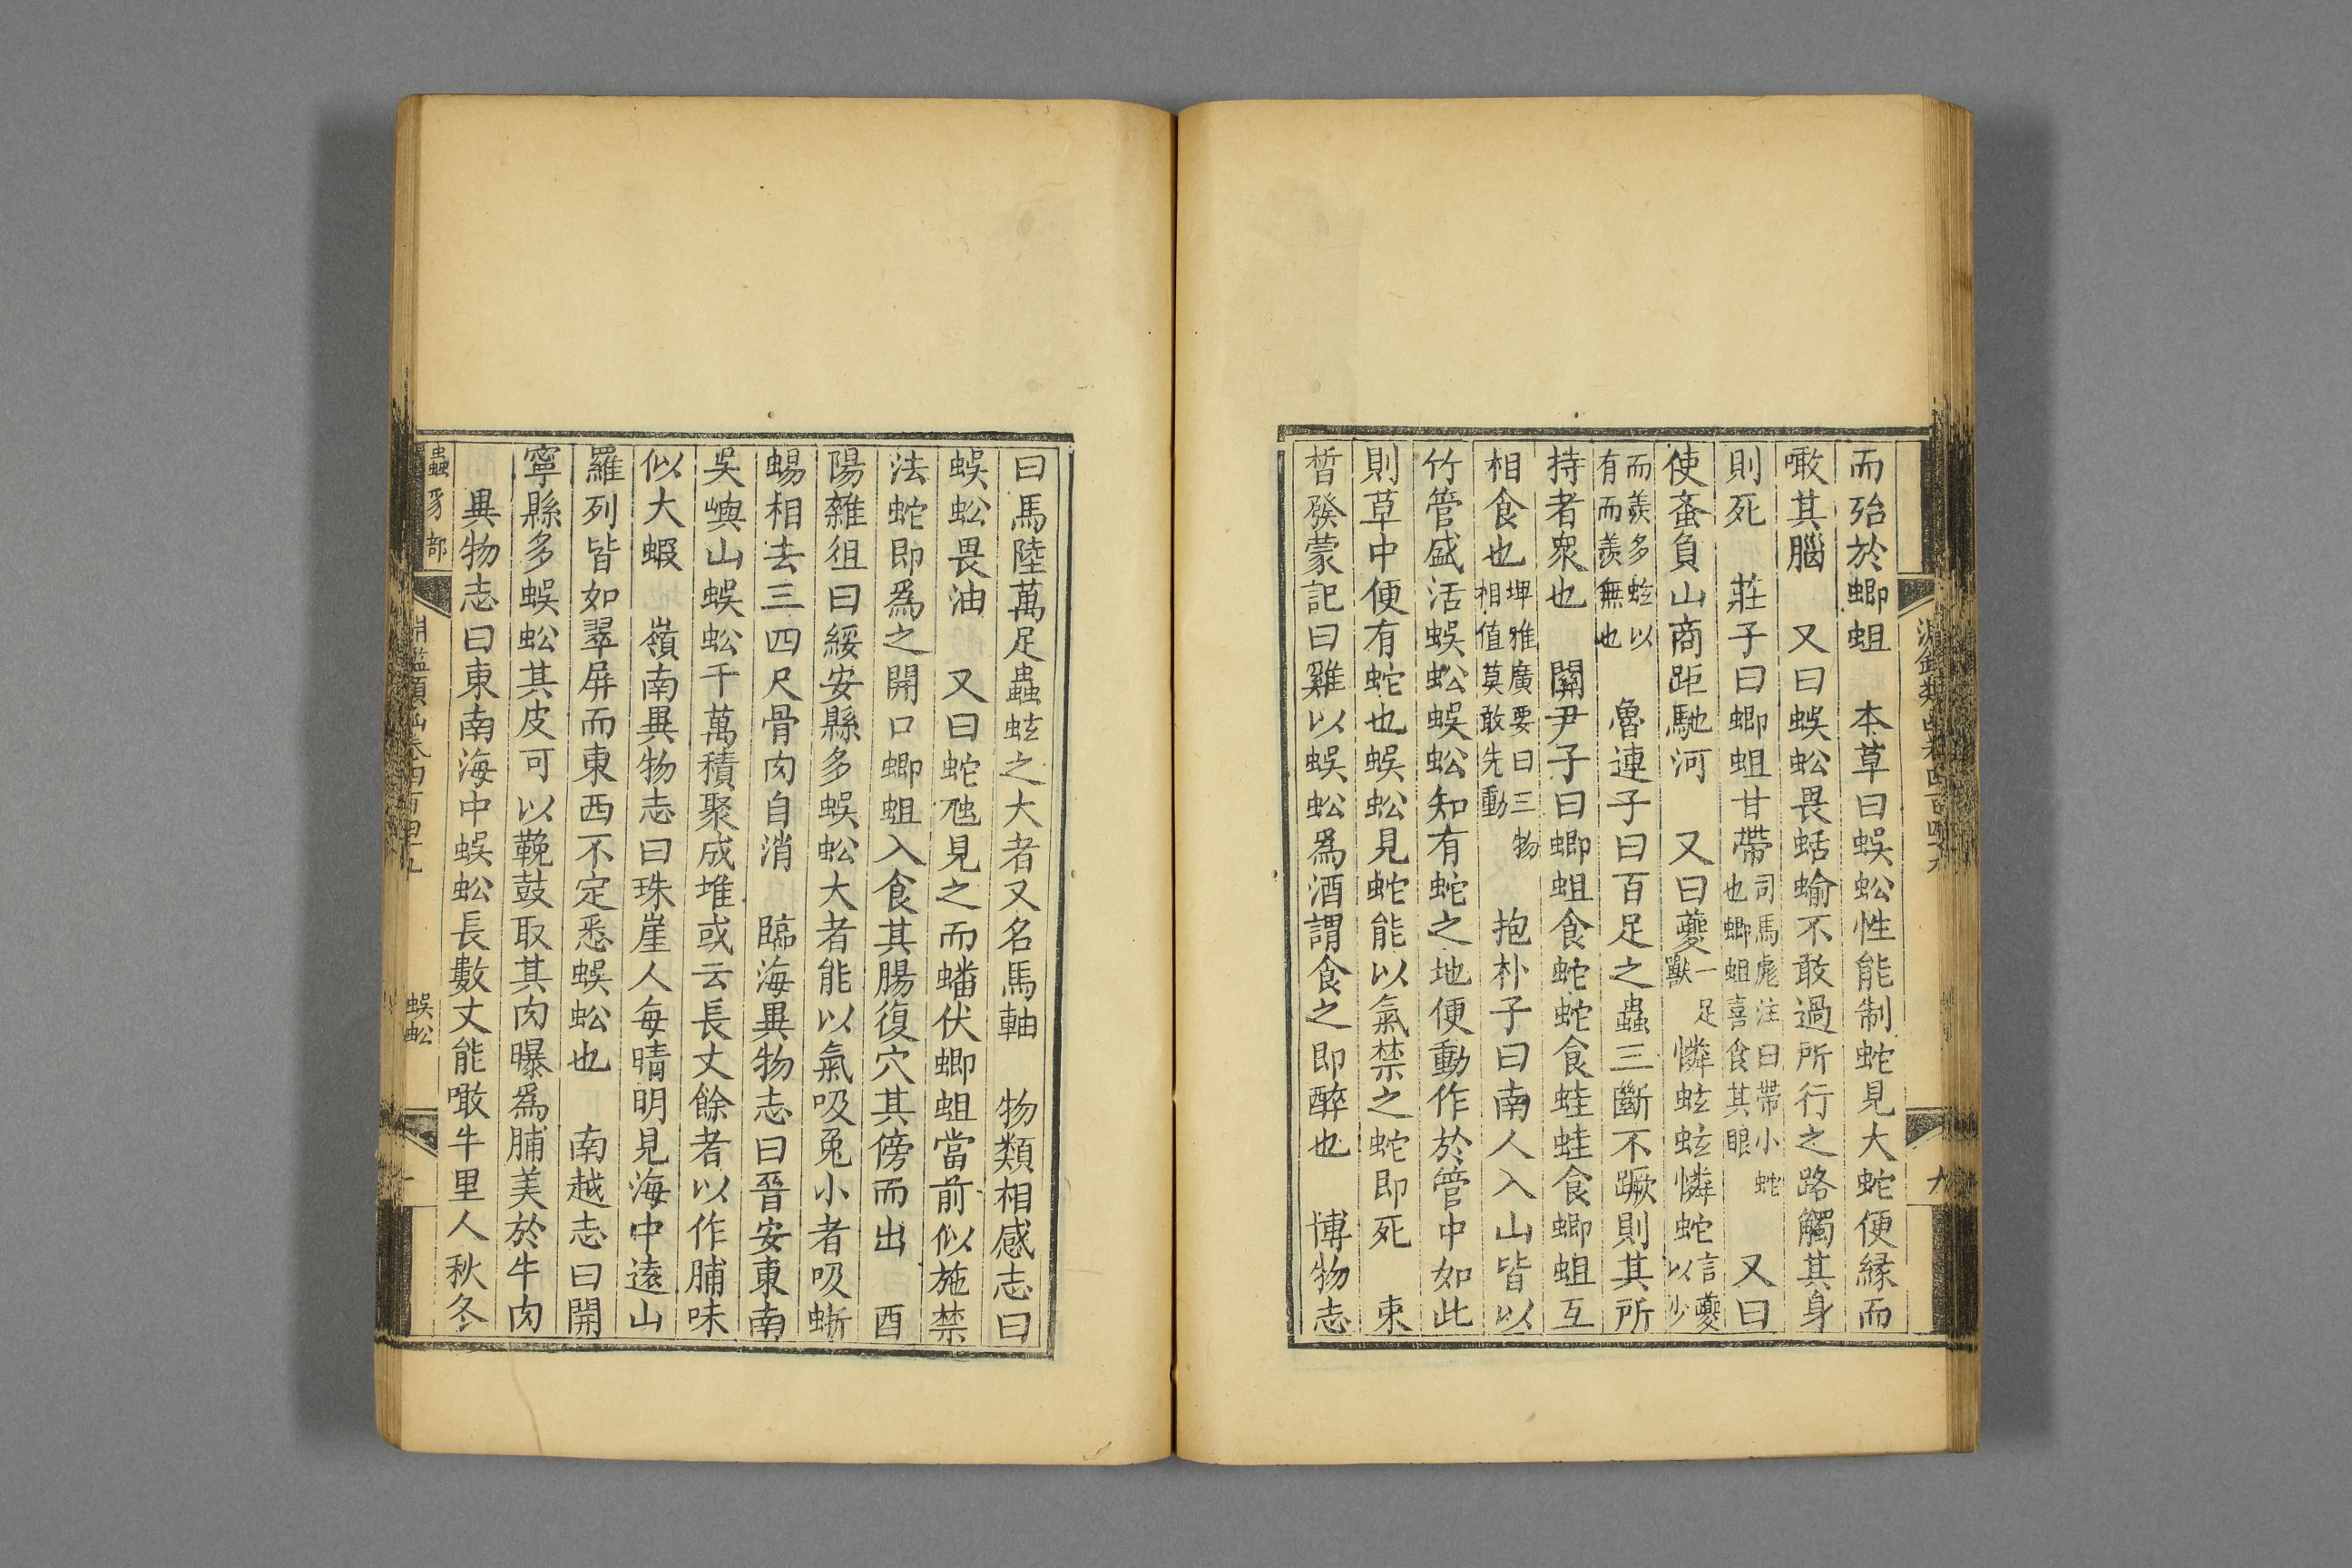 而殆於蝍蛆　本草曰蜈蚣性能制蛇見大蛇便緣而
噉其腦　又曰蜈蚣畏蛞蝓不敢過所行之路觸其身
則死　莊子曰蝍蛆甘帶司馬彪注曰帶小蛇也蝍蛆喜食其眼　又曰
使蚉負山商距馳河　又曰夔一足獸憐蚿蚿憐蛇言夔以少
而羨多蚿以有而羨無也　魯連子曰百足之蟲三斷不蹶則其所
持者眾也　關尹子曰蝍蛆食蛇蛇食蛙蛙食蝍蛆互
相食也埤雅廣要曰三物相值莫敢先動　抱朴子曰南人入山皆以
竹管盛活蜈蚣蜈蚣知有蛇之地便動作於管中如此
則草中便有蛇也蜈蚣見蛇能以氣禁之蛇即死　束
晳發蒙記曰雞以蜈蚣爲酒謂食之即醉也　博物志
曰馬陸萬足蟲蚿之大者又名馬軸　物類相感志曰
蜈蚣畏油　又曰蛇虺見之而蟠伏蝍蛆當前似施禁
法蛇即爲之開口蝍蛆入食其腸復穴其傍而出　酉
陽雜俎曰綏安縣多蜈蚣大者能以氣吸兔小者吸蜥
蜴相去三四尺骨肉自消　臨海異物志曰晉安東南
吳嶼山蜈蚣千萬積聚成堆或云長丈餘者以作脯味
似大蝦　嶺南異物志曰珠崖人每晴明見海中遠山
羅列皆如翠屏而東西不定悉蜈蚣也　南越志曰開
寧縣多蜈蚣其皮可以鞔鼓取其肉曝爲脯美於牛肉
異物志曰東南海中蜈蚣長數丈能噉牛里人秋冬
蟲豸部
蜈蚣